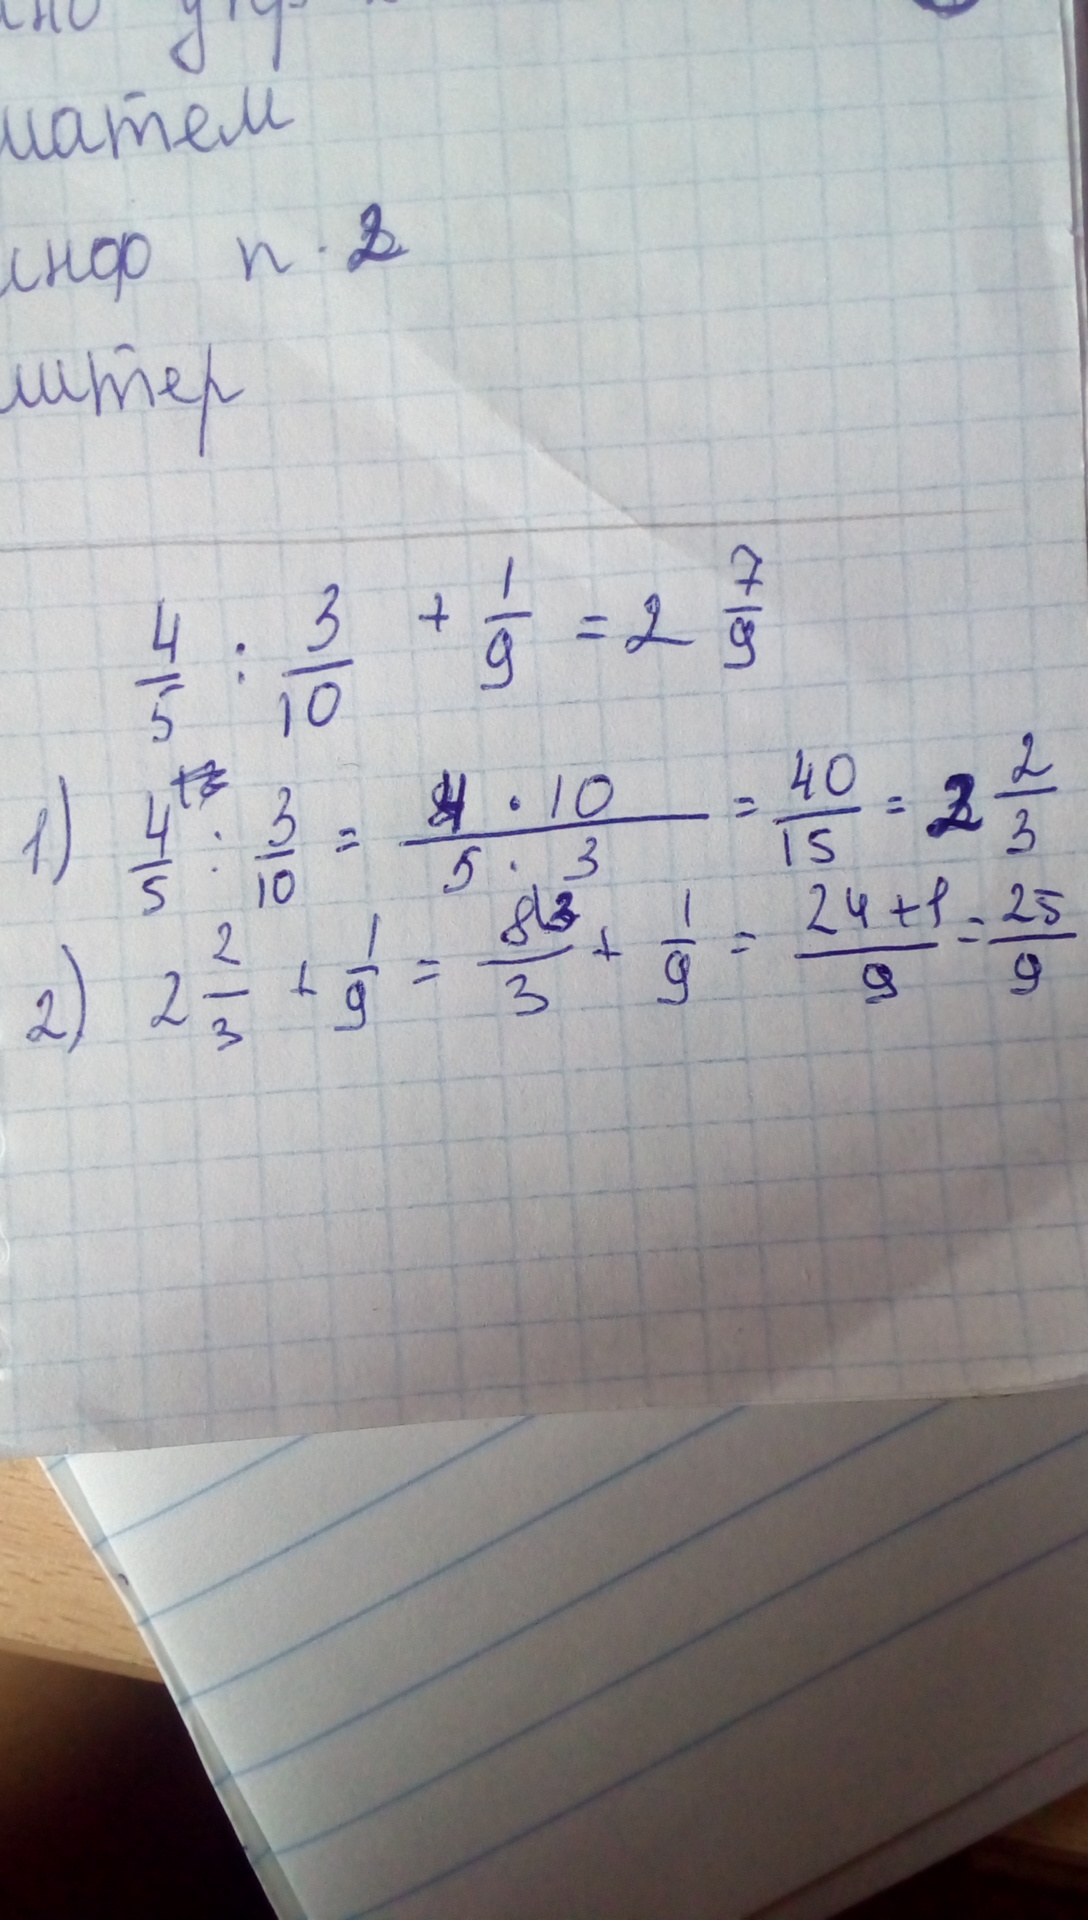 матем
инф п. 2
литер
4/5 : 3/10 + 1/9 = 2 7/9
1) 4/5 : 3/10 = 4 · 10 / 5 · 3 = 40/15 = 2 2/3
2) 2 2/3 + 1/9 = 8\3 / 3 + 1/9 = 24+1 / 9 = 25/9